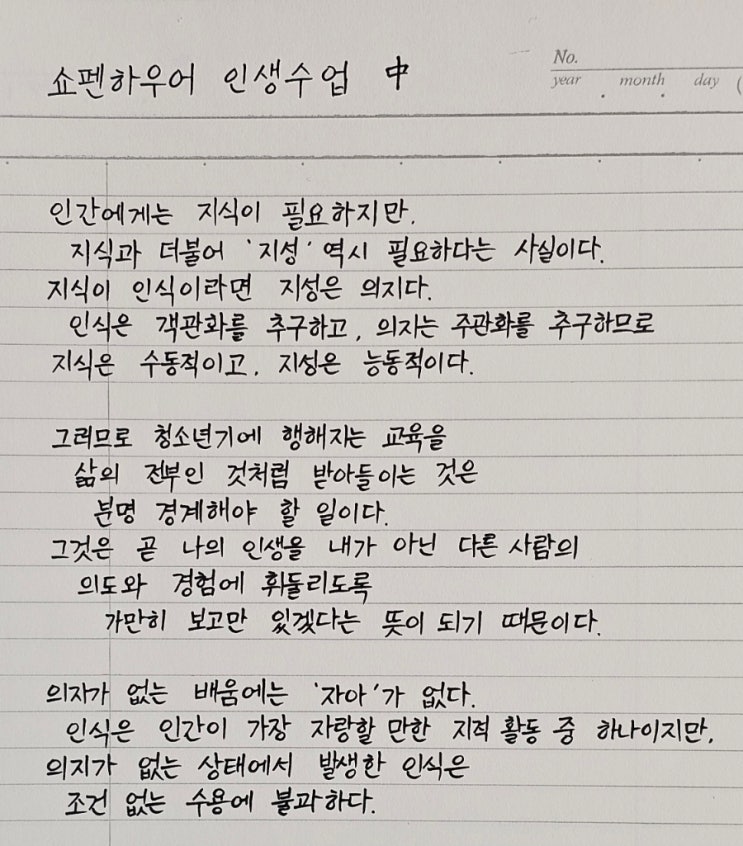 쇼펜하우어 인생수업 中
No.
year month day (
인간에게는 지식이 필요하지만.
지식과 더불어 '지성' 역시 필요하다는 사실이다.
지식이 인식이라면 지성은 의지다.
인식은 객관화를 추구하고, 의지는 주관화를 추구하므로
지식은 수동적이고, 지성은 능동적이다.
그러므로 청소년기에 행해지는 교육을
삶의 전부인 것처럼 받아들이는 것은
분명 경계해야 할 일이다.
그것은 곧 나의 인생을 내가 아닌 다른 사람의
의도와 경험에 휘둘리도록
가만히 보고만 있겠다는 뜻이 되기 때문이다.
의지가 없는 배움에는 '자아'가 없다.
인식은 인간이 가장 자랑할 만한 지적 활동 중 하나이지만,
의지가 없는 상태에서 발생한 인식은
조건 없는 수용에 불과하다.